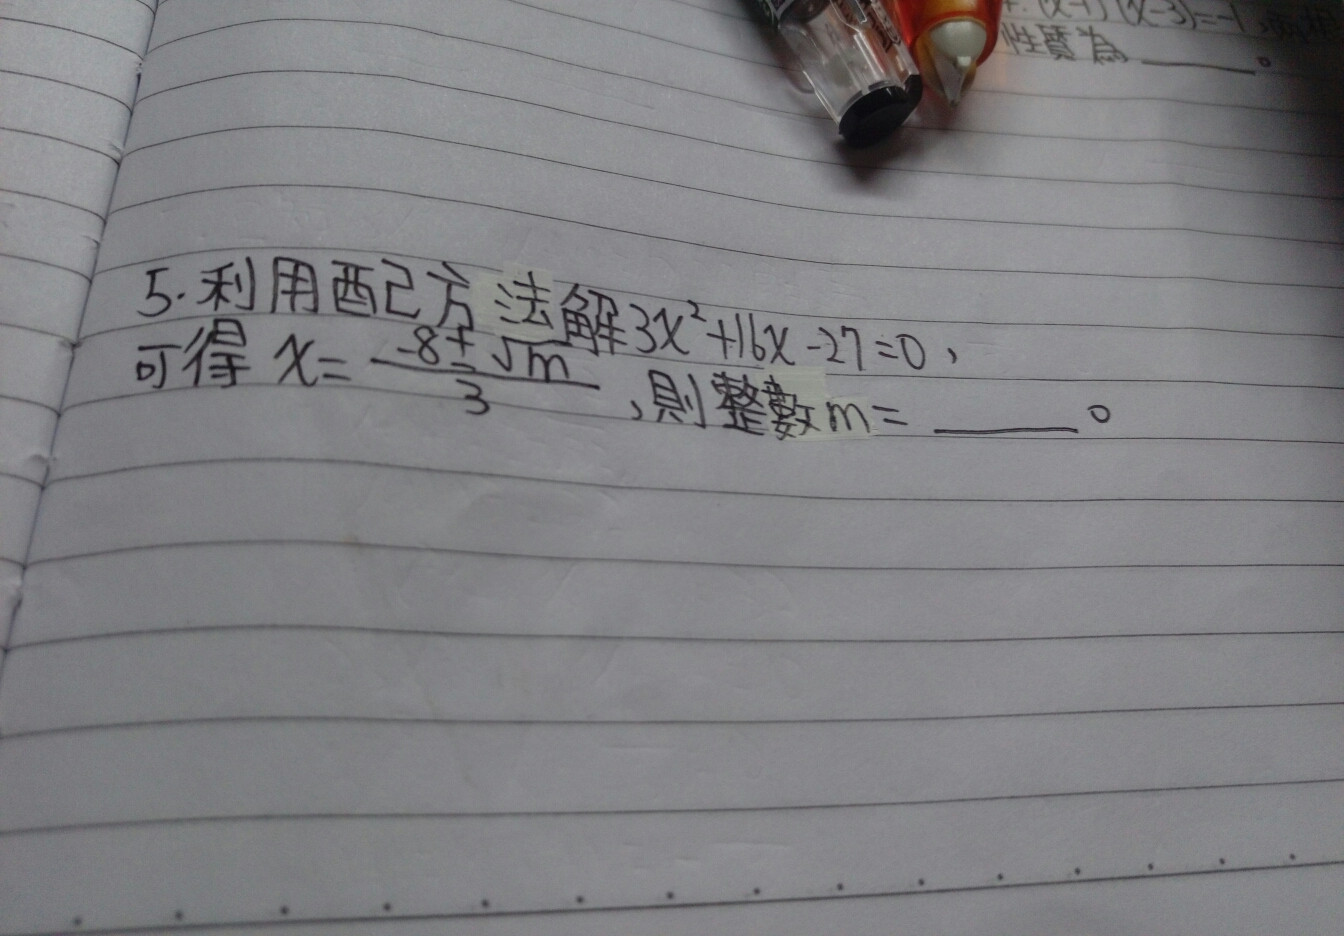 (x-1)(x-3)=-1,
性質為 ______。
5.利用配方法解3x²+16x-27=0,
可得 x= (-8±√m)/3 ,則整數m= ______。